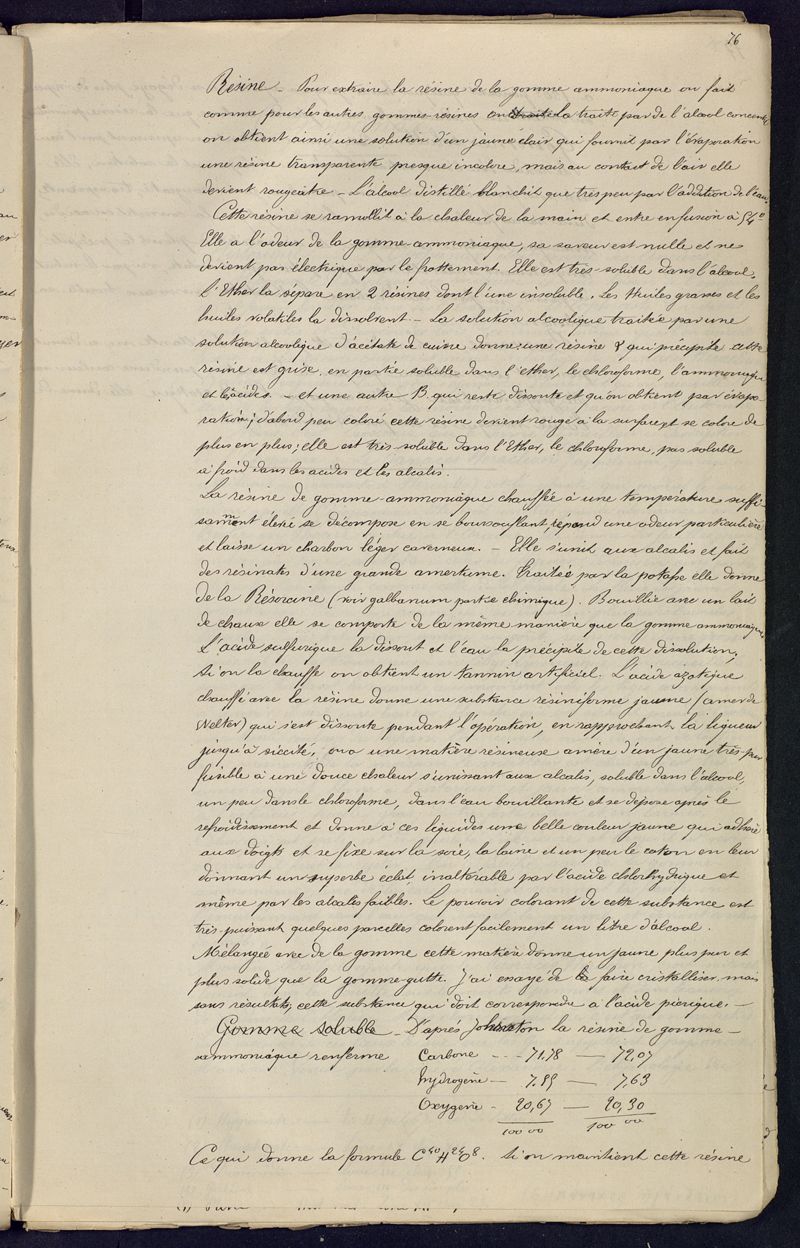 76
Résine – Pour extraire la résine de la gomme ammoniaque on fait
comme pour les autres gommes-résines on la traite par de l'alcool concentré
on obtient ainsi une solution d'un jaune clair qui fournit par l'évaporation
une résine transparente presque incolore, mais au contact de l'air elle
devient rougeâtre – L'alcool distillé blanchit que très peu par l'addition de l'eau,
Cette résine se ramollit à la chaleur de la main et entre en fusion à 54°
Elle a l'odeur de la gomme ammoniaque, sa saveur est nulle et ne
devient pas électrique par le frottement. Elle est très soluble dans l'alcool,
l'Ether la sépare en 2 résines dont l'une insoluble. Les Huiles grasses et les
huiles volatiles la dissolvent. – La solution alcoolique traitée par une
solution alcoolique d'acétate de cuivre donne: une résine α qui précipite cette
résine est grise, en partie soluble dans l'ether, le chloroforme, l'ammoniaque
et les acides. – et une autre B. qui reste dissoute et qu'on obtient par évapo
ration; d'abord peu coloré cette résine devient rouge à la surface et se colore de
plus en plus; elle est très soluble dans l'Ether, le chloroforme, pas soluble
à froid dans les acides et les alcalis.
La résine de gomme-ammoniaque chauffée à une température suffi-
samment élevé se décompose en se boursouflant répand une odeur particulière
et laisse un charbon léger caverneux. – Elle s'unit aux alcalis et fait
des résinates d'une grande amertume. Traitée par la potasse elle donne
de la Résorcine (voir galbanum partie chimique). Bouillie avec un lait
de chaux elle se comporte de la même manière que la gomme ammoniaque.
L'acide sulfurique la dissout et l'eau la précipite de cette dissolution,
si on la chauffe on obtient un tannin artificiel. L'acide azotique
chauffé avec la résine donne une substance résiniforme jaune (amer de
Welter) qui s'est dissoute pendant l'opération, en rapprochant la liqueur
jusqu'à siccité, on a une matière résineuse amère d'un jaune très pur
fusible à une douce chaleur s'unissant aux alcalis, soluble dans l'alcool,
un peu dans le chloroforme, dans l'eau bouillante et se dépose après le
refroidissement et donne à ces liquides une belle couleur jaune qui adhère
aux doigts et se fixe sur la soie, la laine et un peu le coton en leur
donnant un superbe éclat, inaltérable par l'acide chlorhydrique et
même par les alcalis faibles. Le pouvoir colorant de cette substance est
très puissant quelques parcelles colorent facilement un litre d'alcool.
Mélangée avec de la gomme cette matière donne un jaune plus pur et
plus solide que la gomme-gutte. J'ai essayé de la faire cristalliser mais
sans résultats, cette substance qui doit correspondre a l'acide picrique. –
Gomme soluble – D'après Johnston la résine de gomme –
ammoniaque renferme Carbone --- 71,78 — 72,07
hydrogène – 7,55 — 7,63
Oxygène - 20,67 — 20,30
100 00 100 00
Ce qui donne la formule C⁴⁰H²⁴O⁸. Si on maintient cette résine